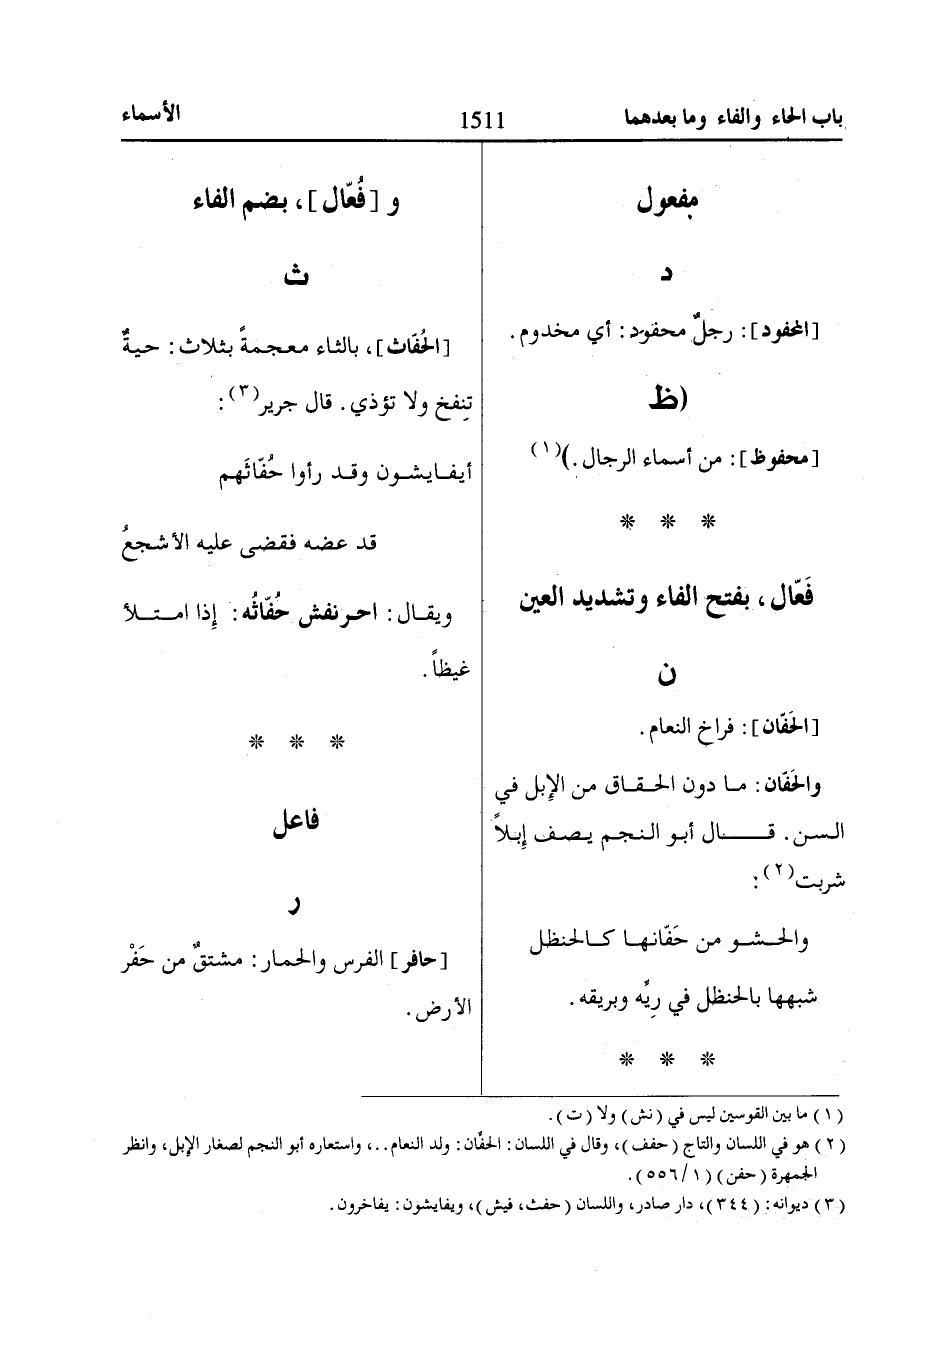 باب الحاء والفاء وما بعدهما 1511 الأسماء
مفعول
د
[المحفود]: رجلٌ محفود: أي مخدوم.
(ظ
[محفوظ]: من أسماء الرجال.)(١)
* * *
فَعّال، بفتح الفاء وتشديد العين
ن
[الحَفّان]: فراخ النعام.
والحَفّان: ما دون الحقاق من الإبل في
السن. قال أبو النجم يصف إبلاً
شربت(٢):
والحشو من حَفّانها كالحنظل
شبهها بالحنظل في ريِّه وبريقه.
* * *
و [فُعّال]، بضم الفاء
ث
[الحُفّاث]، بالثاء معجمةً بثلاث: حيةٌ
تنفخ ولا تؤذي. قال جرير(٣):
أيفايشون وقد رأوا حُفّاثَهم
قد عضه فقضى عليه الأشجعُ
ويقال: احرنفش حُفّاثُه: إذا امتلأ
غيظاً.
* * *
فاعل
ر
[حافر] الفرس والحمار: مشتقٌ من حَفْر
الأرض.
(١) ما بين القوسين ليس في (نش) ولا (ت).
(٢) هو في اللسان والتاج (حفف)، وقال في اللسان: الحفّان: ولد النعام..، واستعاره أبو النجم لصغار الإبل، وانظر
الجمهرة (حفن) (١/ ٥٥٦).
(٣) ديوانه: (٣٤٤)، دار صادر، واللسان (حفث، فيش)، ويفايشون: يفاخرون.